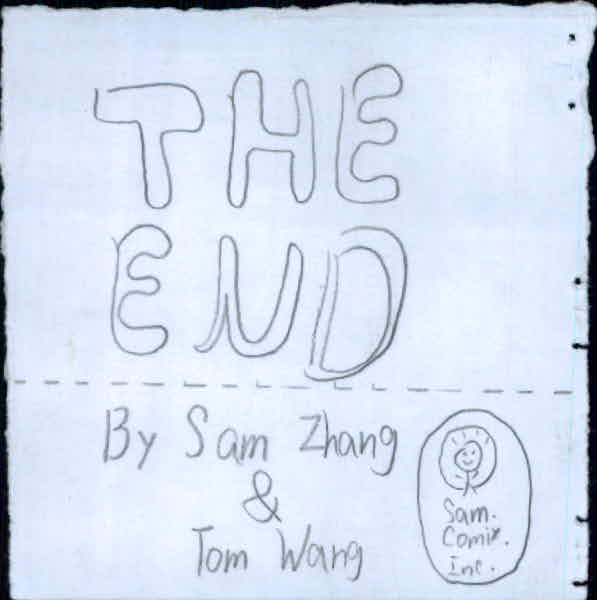 THE
END
By Sam Zhang
&
Tom Wang
Sam.
Comix.
Inc.